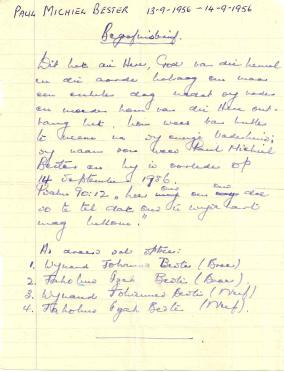 PAUL MICHIEL BESTER 13-9-1956 - 14-9-1956
Begrafnisbrief.
Dit het die Here, God van die hemel
en die aarde behaag om maar
een enkele dag nadat sy vader
en moeder hom van die Here ont-
vang het, hom weer
te neem na sy ewige Vaderhuis;
sy naam sou wees Paul Michiel
Bester en hy is oorlede op
14 September 1956.
Psalm 90:12, "leer ons om ons dae
so te tel dat ons 'n wyse hart
mag bekom."
As draers sal optree:
1. Wynand Johannes Bester (Broer)
2. Izak Bester (Broer).
3. Wynand Johannes Bester (Neef)
4. Izak Bester (Neef).